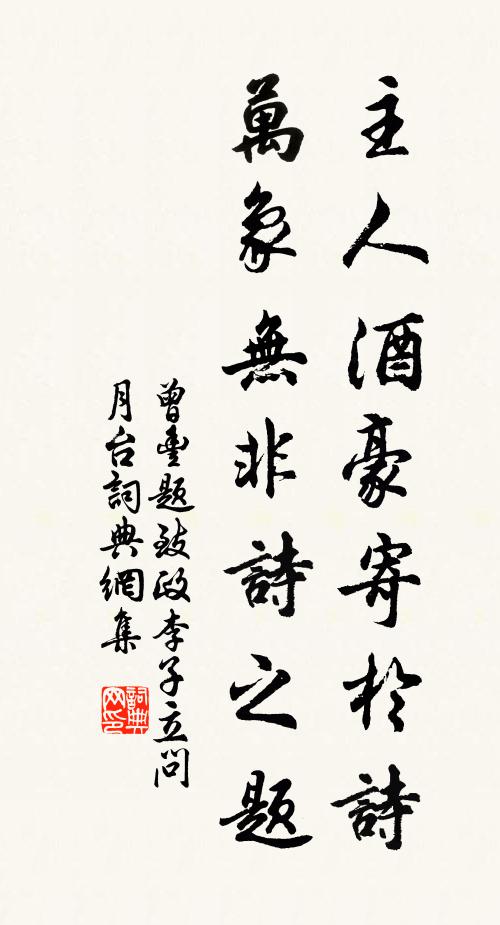 主人酒豪寄於詩
萬象無非詩之題
曾豐題致政李子立問
月台詞典網集
詞典网印